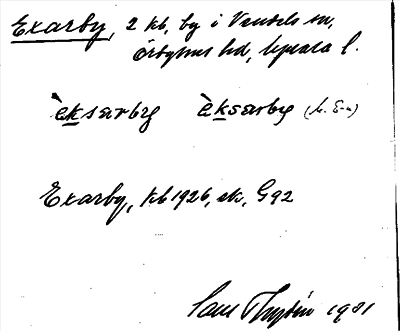 Exarby, 2 kb, by i Vendels sn,
Örbyhus hd, Uppsala l.
èksarby èksarby
Exarby, kb 1926, ek, G92
1981